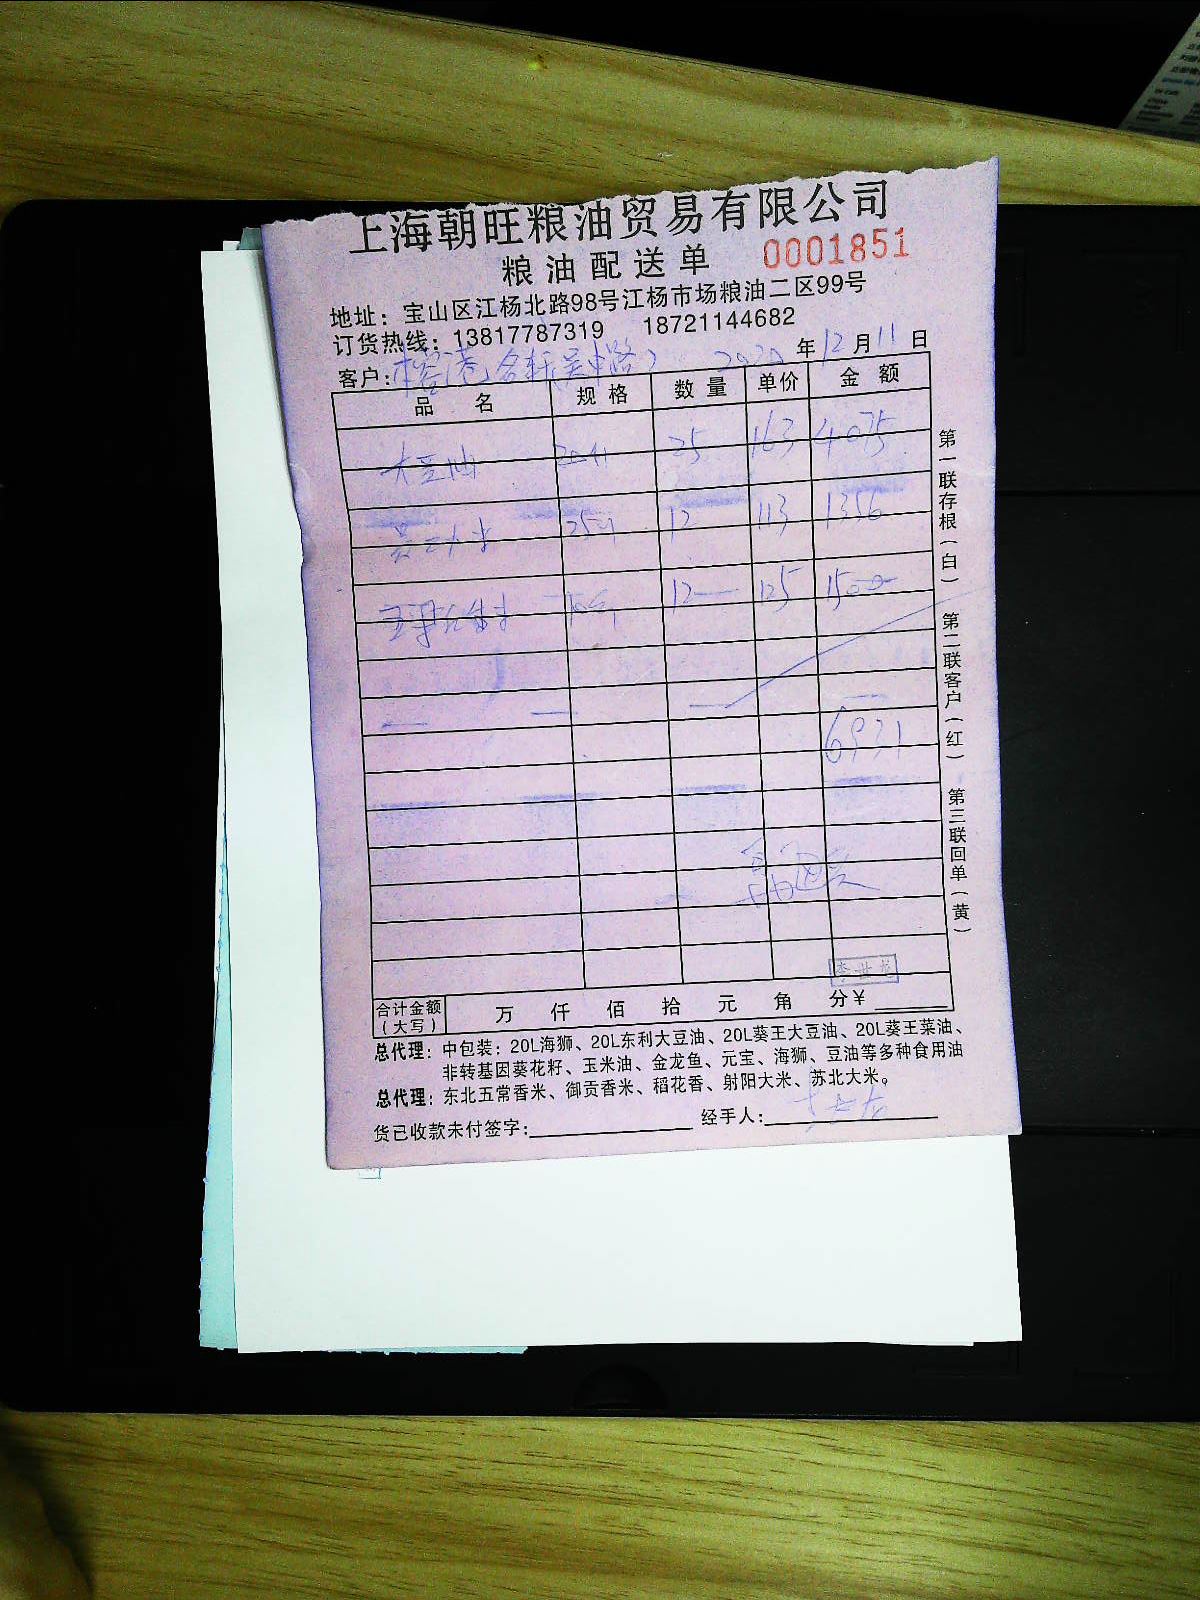 上海朝旺粮油贸易有限公司
粮油配送单 0001851
地址：宝山区江杨北路98号江杨市场粮油二区99号
订货热线：13817787319 18721144682
客户：榕港 2020年12月11日
品名 规格 数量 单价 金额
大豆油 25 163 4075
大米 25 12 113 1356
12 125 1500
6931
李世龙
合计金额（大写） 万 仟 佰 拾 元 角 分¥
总代理：中包装：20L海狮、20L东利大豆油、20L葵王大豆油、20L葵王菜油、
非转基因葵花籽、玉米油、金龙鱼、元宝、海狮、豆油等多种食用油
总代理：东北五常香米、御贡香米、稻花香、射阳大米、苏北大米。
货已收款未付签字： 经手人：
第一联存根（白） 第二联客户（红） 第三联回单（黄）